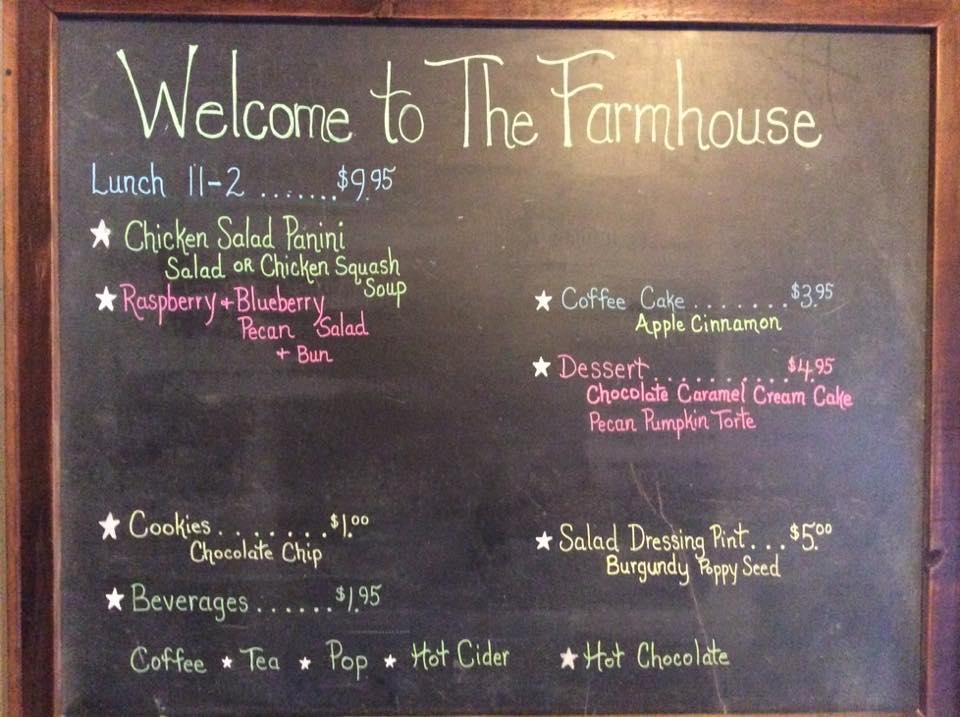 Welcome to The Farmhouse
Lunch 11-2 .......$9.95
Chicken Salad Panini
Salad OR Chicken Squash
Soup
Raspberry + Blueberry
Pecan Salad
+ Bun
Coffee Cake .......$3.95
Apple Cinnamon
Dessert..........$4.95
Chocolate Caramel Cream Cake
Pecan Pumpkin Torte
Cookies.......$1.00
Chocolate Chip
Salad Dressing Pint...$5.00
Burgundy Poppy Seed
Beverages......$1.95
Coffee ★ Tea ★ Pop ★ Hot Cider ★ Hot Chocolate